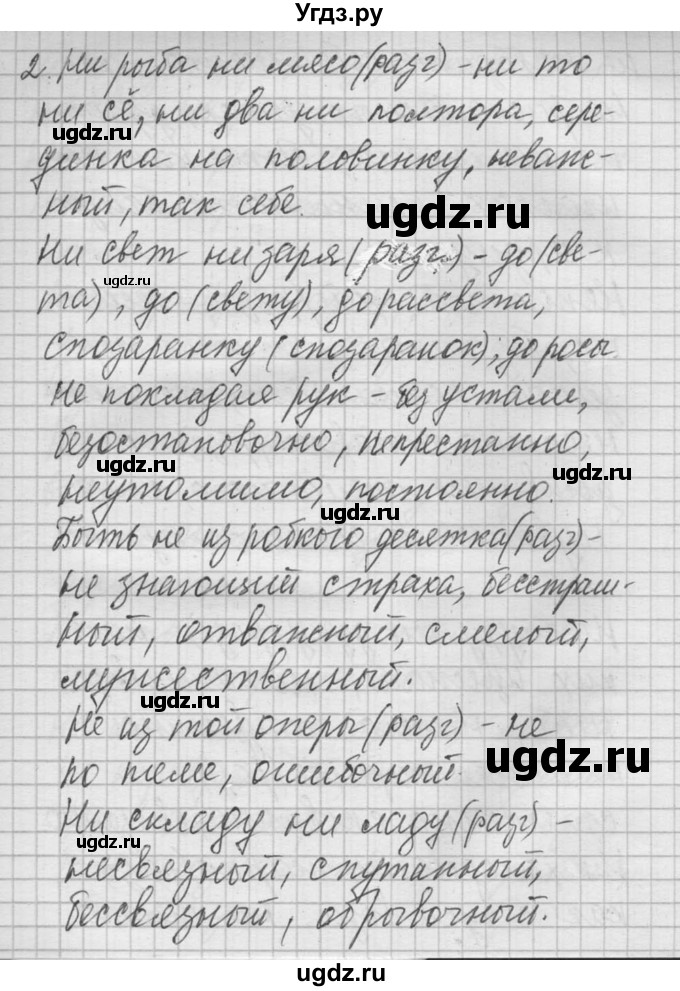 Угдз.ру
2. Ни рыба ни мясо (разг) - ни то
ни сё, ни два ни полтора, сере-
ugdz.ru
динка на половинку, неваж-
ный, так себе.
ugdz.ru
Ни свет ни заря (разг.) - до (све-
ugdz.ru
та), до (свету), до рассвета,
спозаранку (спозаранок), до росы.
Не покладая рук - без устали,
безостановочно, непрестанно,
ugdz.ru ugdz.ru
неутомимо, постоянно.
ugdz.ru
Быть не из робкого десятка (разг) -
не знающий страха, бесстраш-
ный, отважный, смелый,
мужественный.
ugdz.ru
Не из той оперы (разг) - не
по теме, ошибочный.
ugdz.ru
Ни складу ни ладу (разг) -
несвязный, спутанный,
ugdz.ru
бессвязный, обрывочный.
ugdz.ru
ugdz.ru